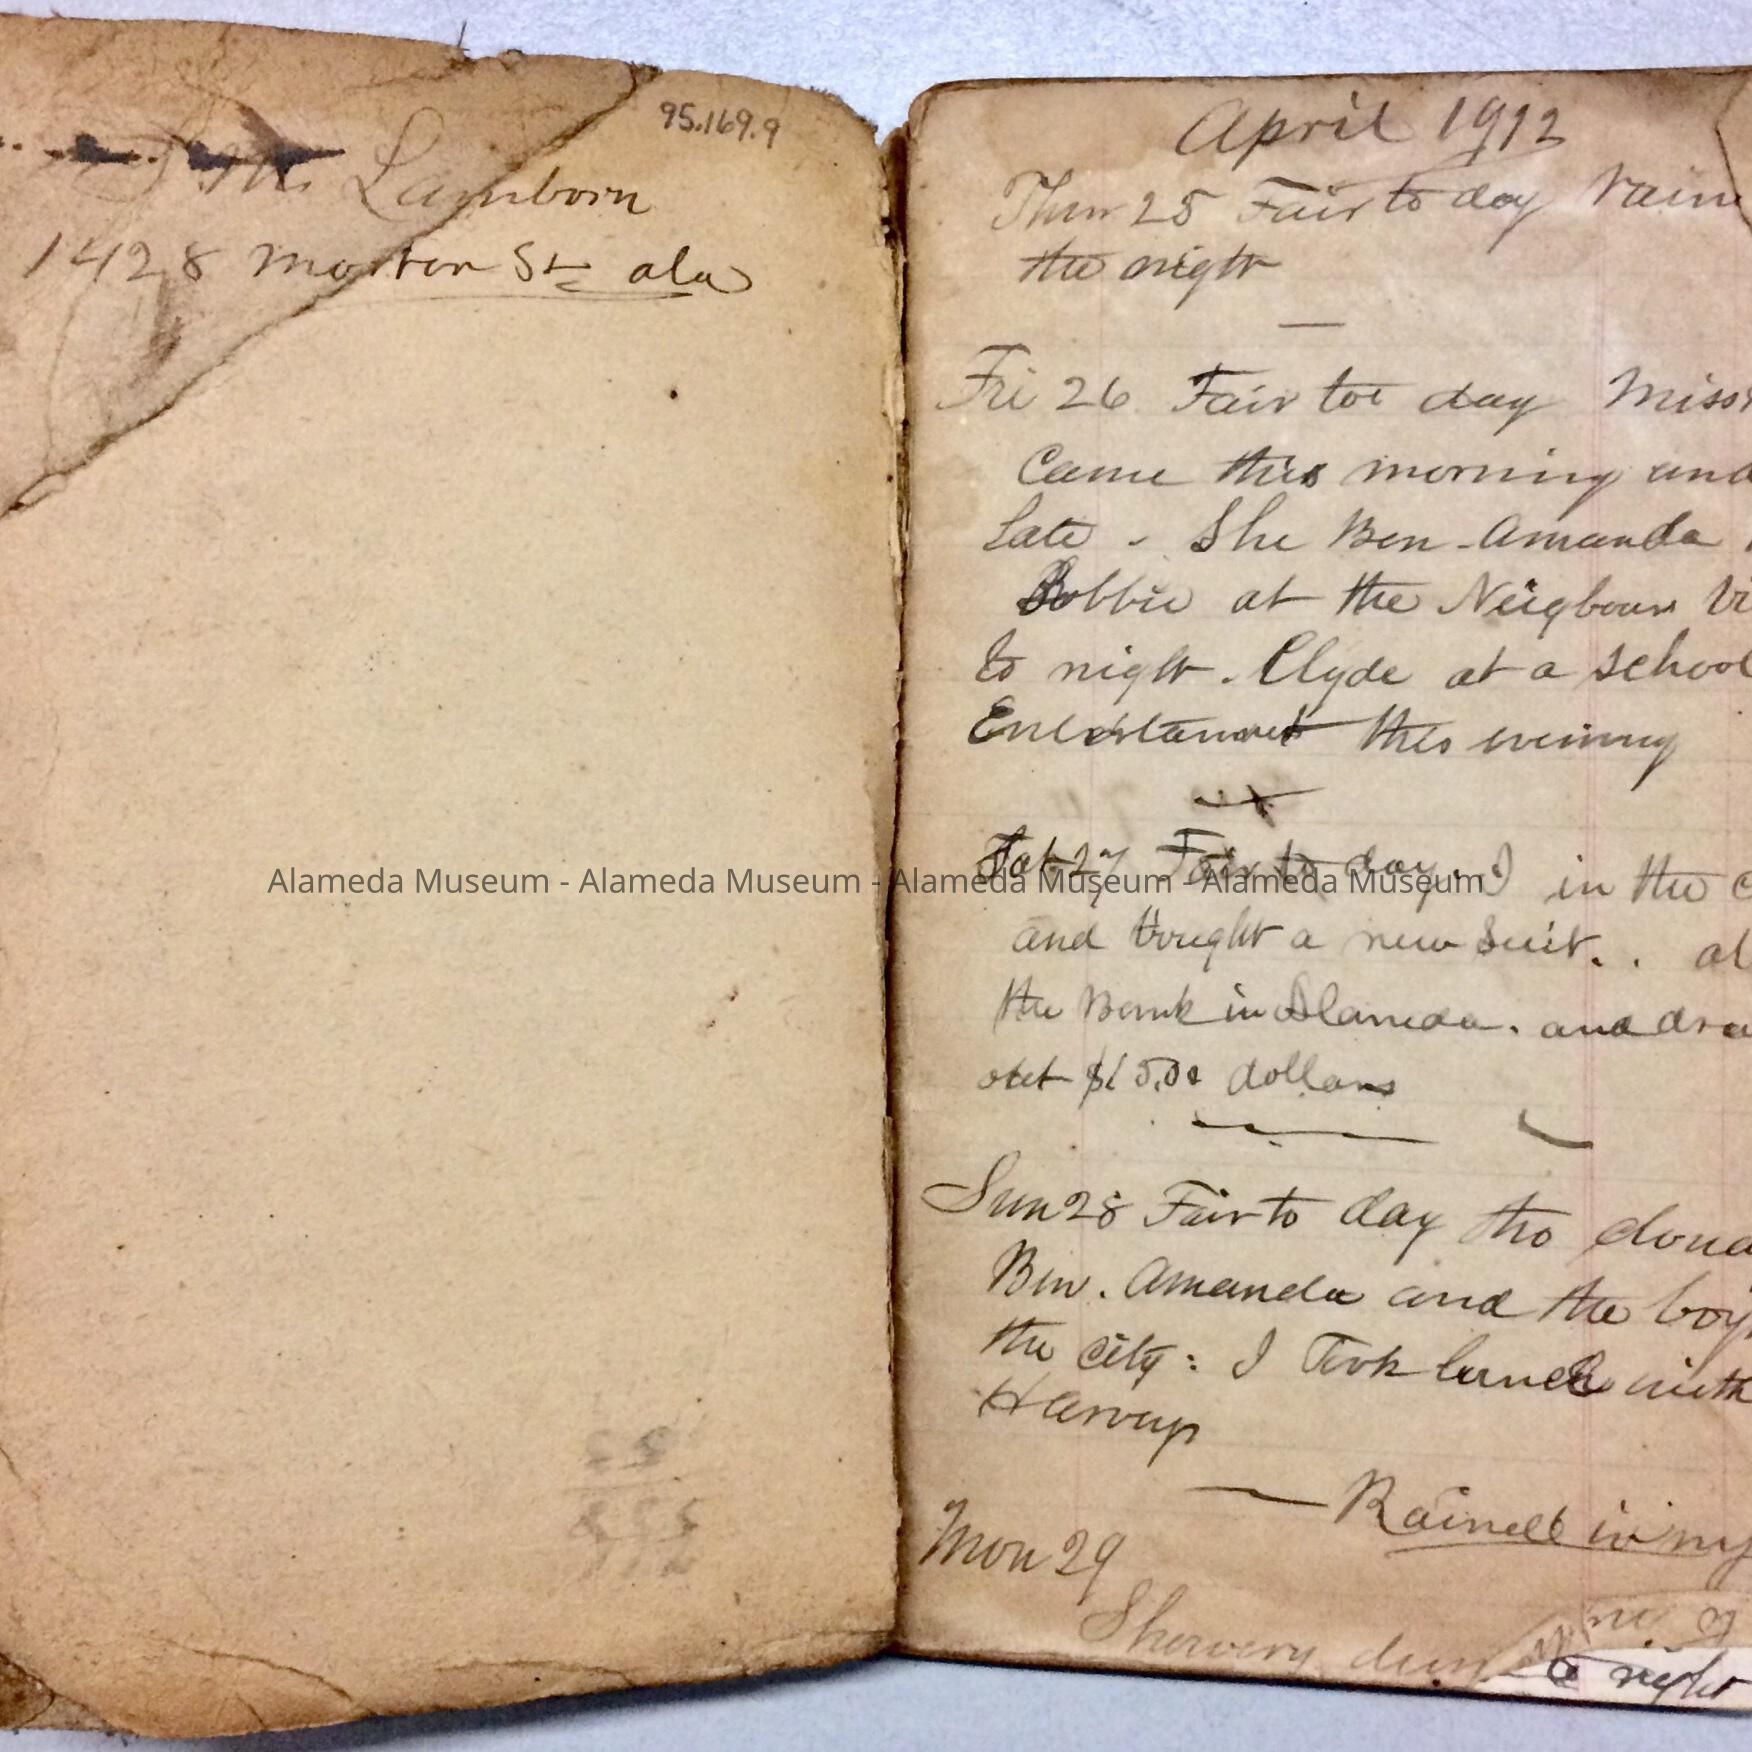 95.169.9
Lamborn
1428 Morton St ala
April 1912
Thur 25 Fair to day rain
the night
Fri 26 Fair toe day Miss
Came this morning and
late - She Ben - Amanda
Bobbie at the Neigbours Vi
to night. Clyde at a school
this evening
Sat 27 Fair to day. I in the c
and bought a new Suit. . al
the Bank in Alameda. and dra
out $15.00 dollars
Sun 28 Fair to day tho cloud
Ben. Amanda and the boys
the city: I Took lunch with
Harveys
Rained in my
Mon 29
Showery
to night
Alameda Museum - Alameda Museum - Alameda Museum - Alameda Museum